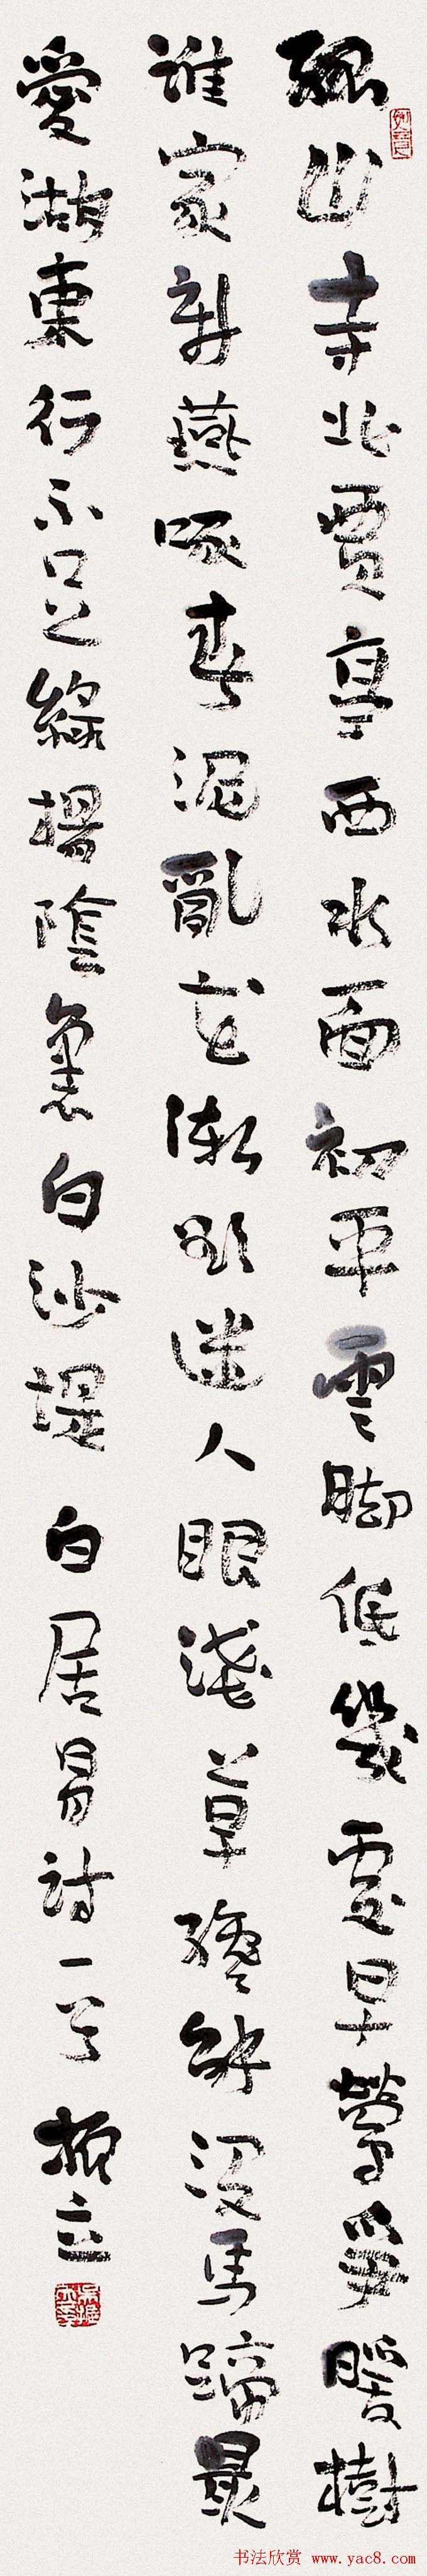 孤山寺北賈亭西水面初平雲脚低幾處早鶯爭暖樹
誰家新燕啄春泥亂花漸欲迷人眼淺草纔能没馬蹄最
愛湖東行不足綠楊陰裏白沙堤 白居易詩一首 振立
书法欣赏 www.yac8.com